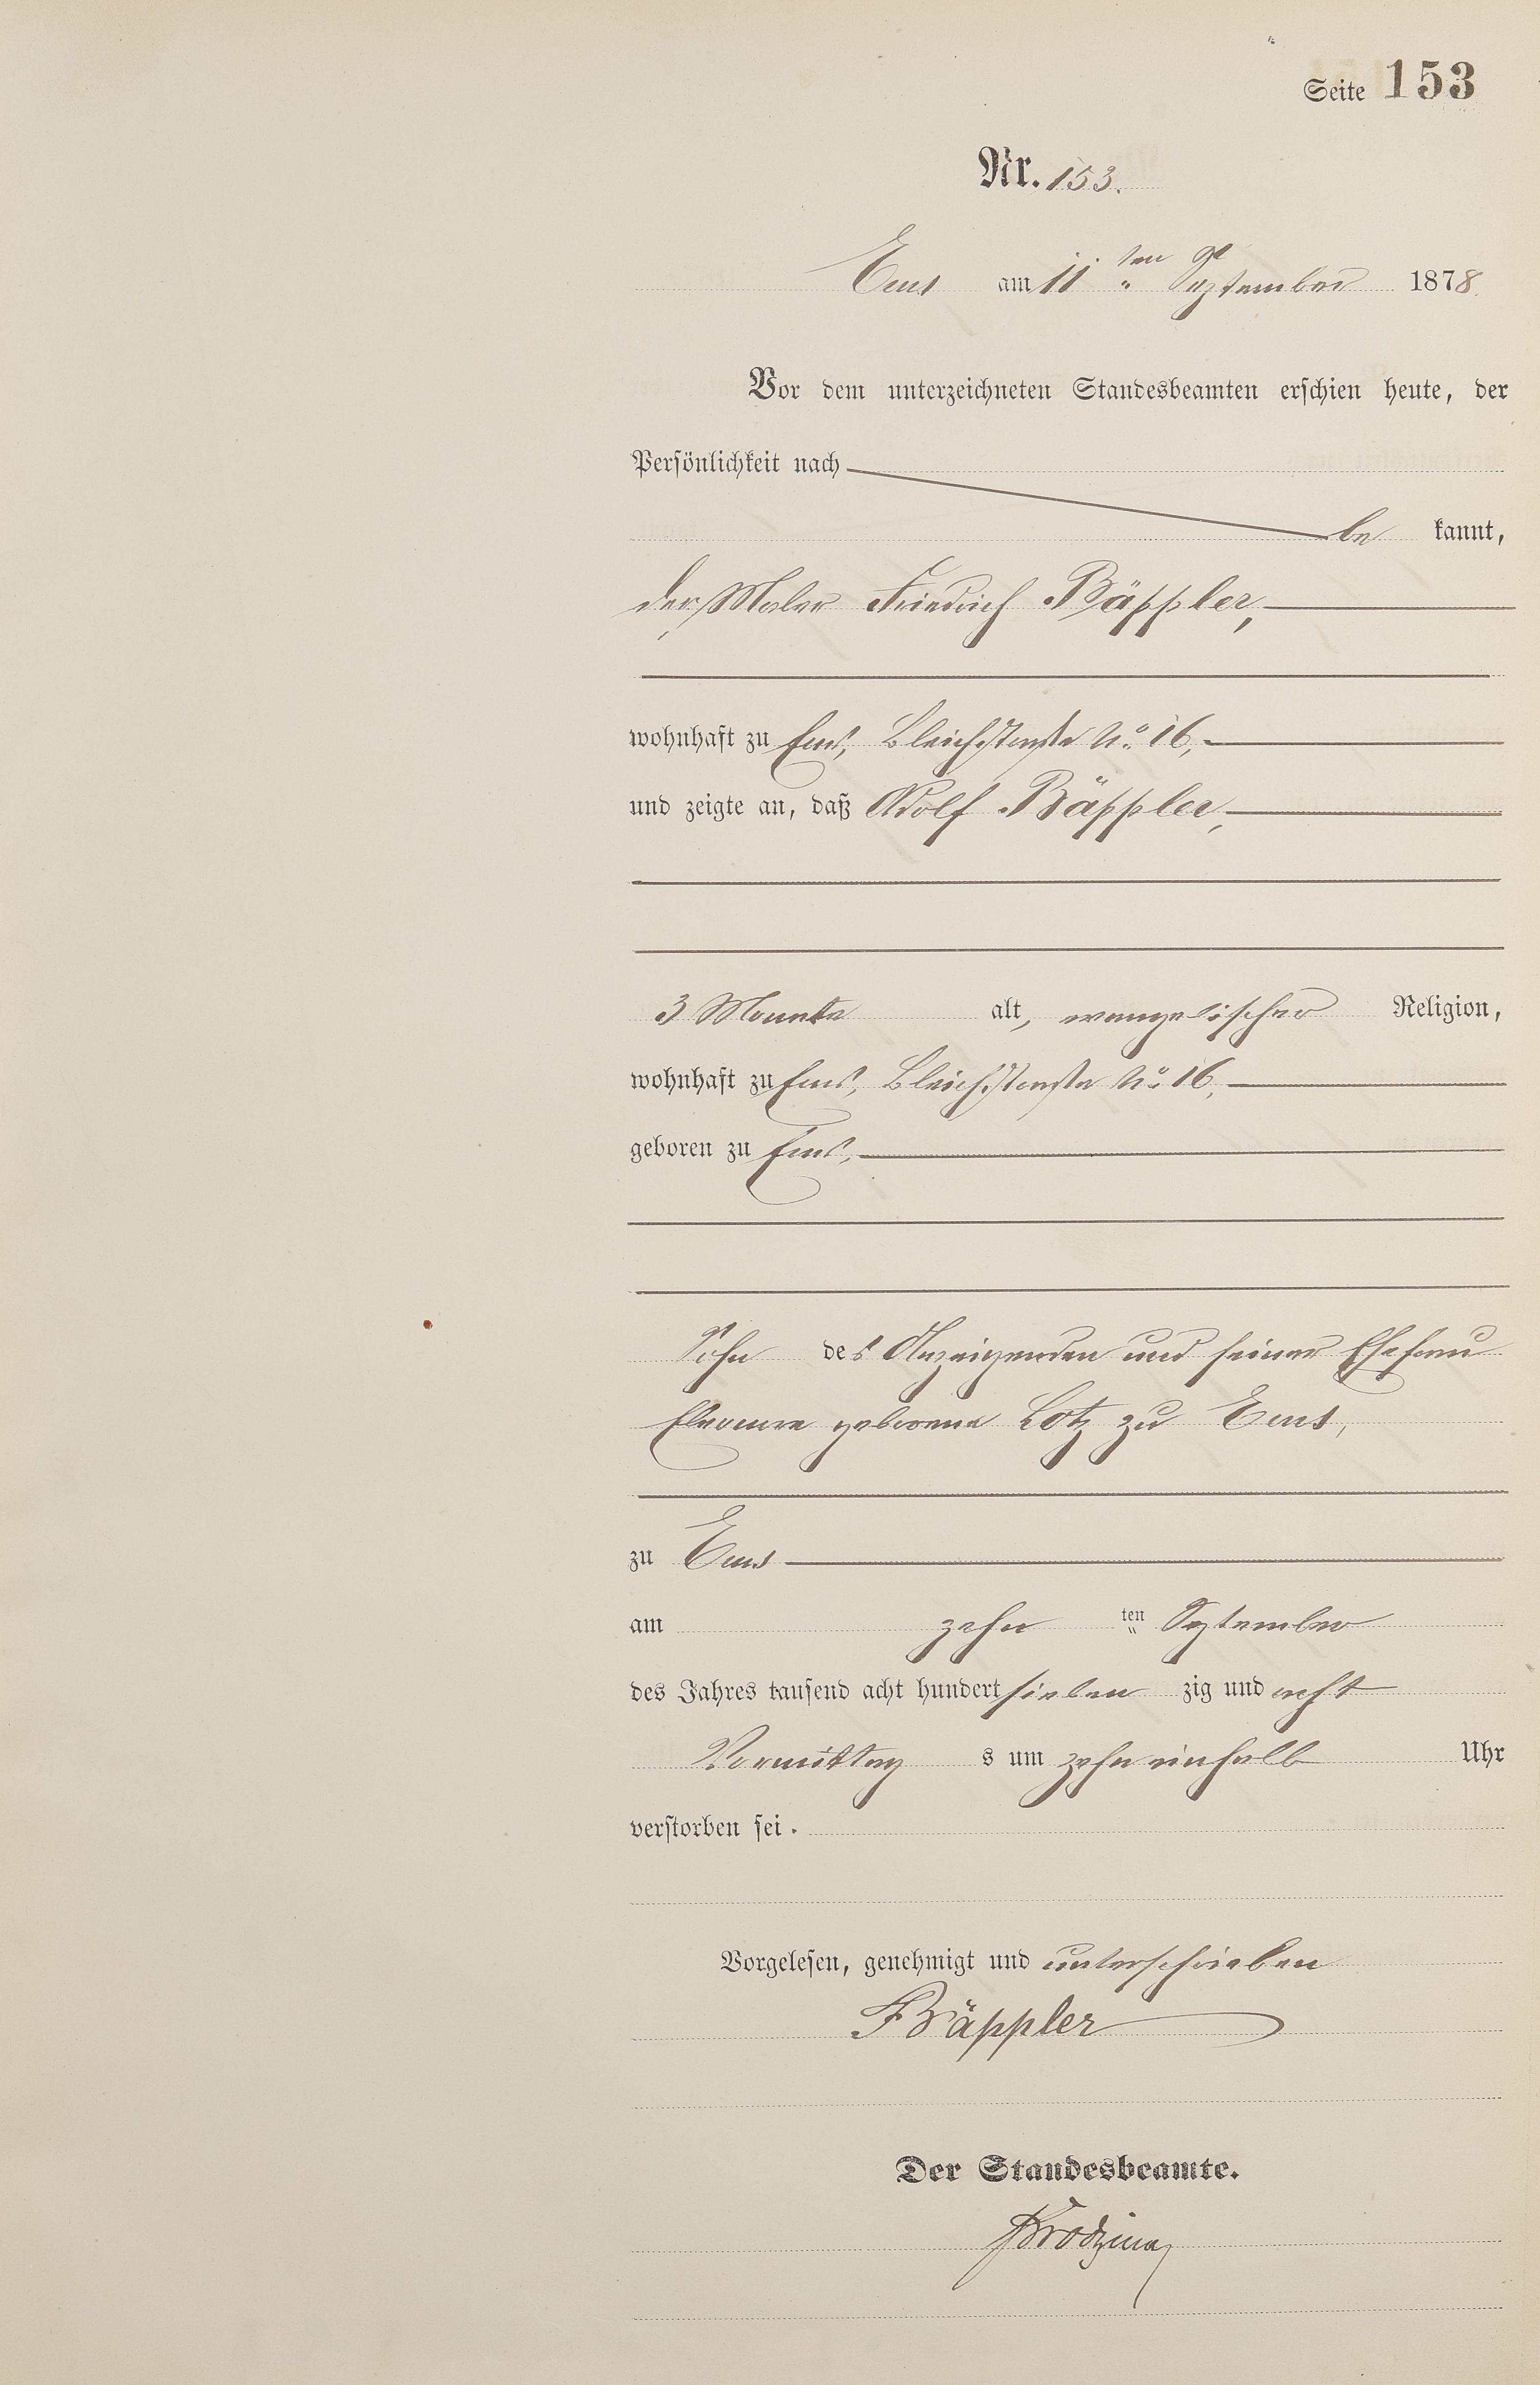 Seite 153
Nr. 153.
Ems am 11ten September 1878.
Vor dem unterzeichneten Standesbeamten erschien heute, der
Persönlichkeit nach
be kannt,
der Maler Friedrich Bäppler,
wohnhaft zu Ems, Bleichstraße No. 16,
und zeigte an, daß Adolf Bäppler,
3 Monate alt, evangelischer Religion,
wohnhaft zu Ems, Bleichstraße No. 16,
geboren zu Ems,
Sohn des Anzeigenden und seiner Ehefrau
Eleonore geborene Lotz zu Ems,
zu Ems
am zehn ten September
des Jahres tausend acht hundert sieben zig und acht
Vormittag s um zehn einhalb Uhr
verstorben sei.
Vorgelesen, genehmigt und unterschrieben
F Bäppler
Der Standesbeamte.